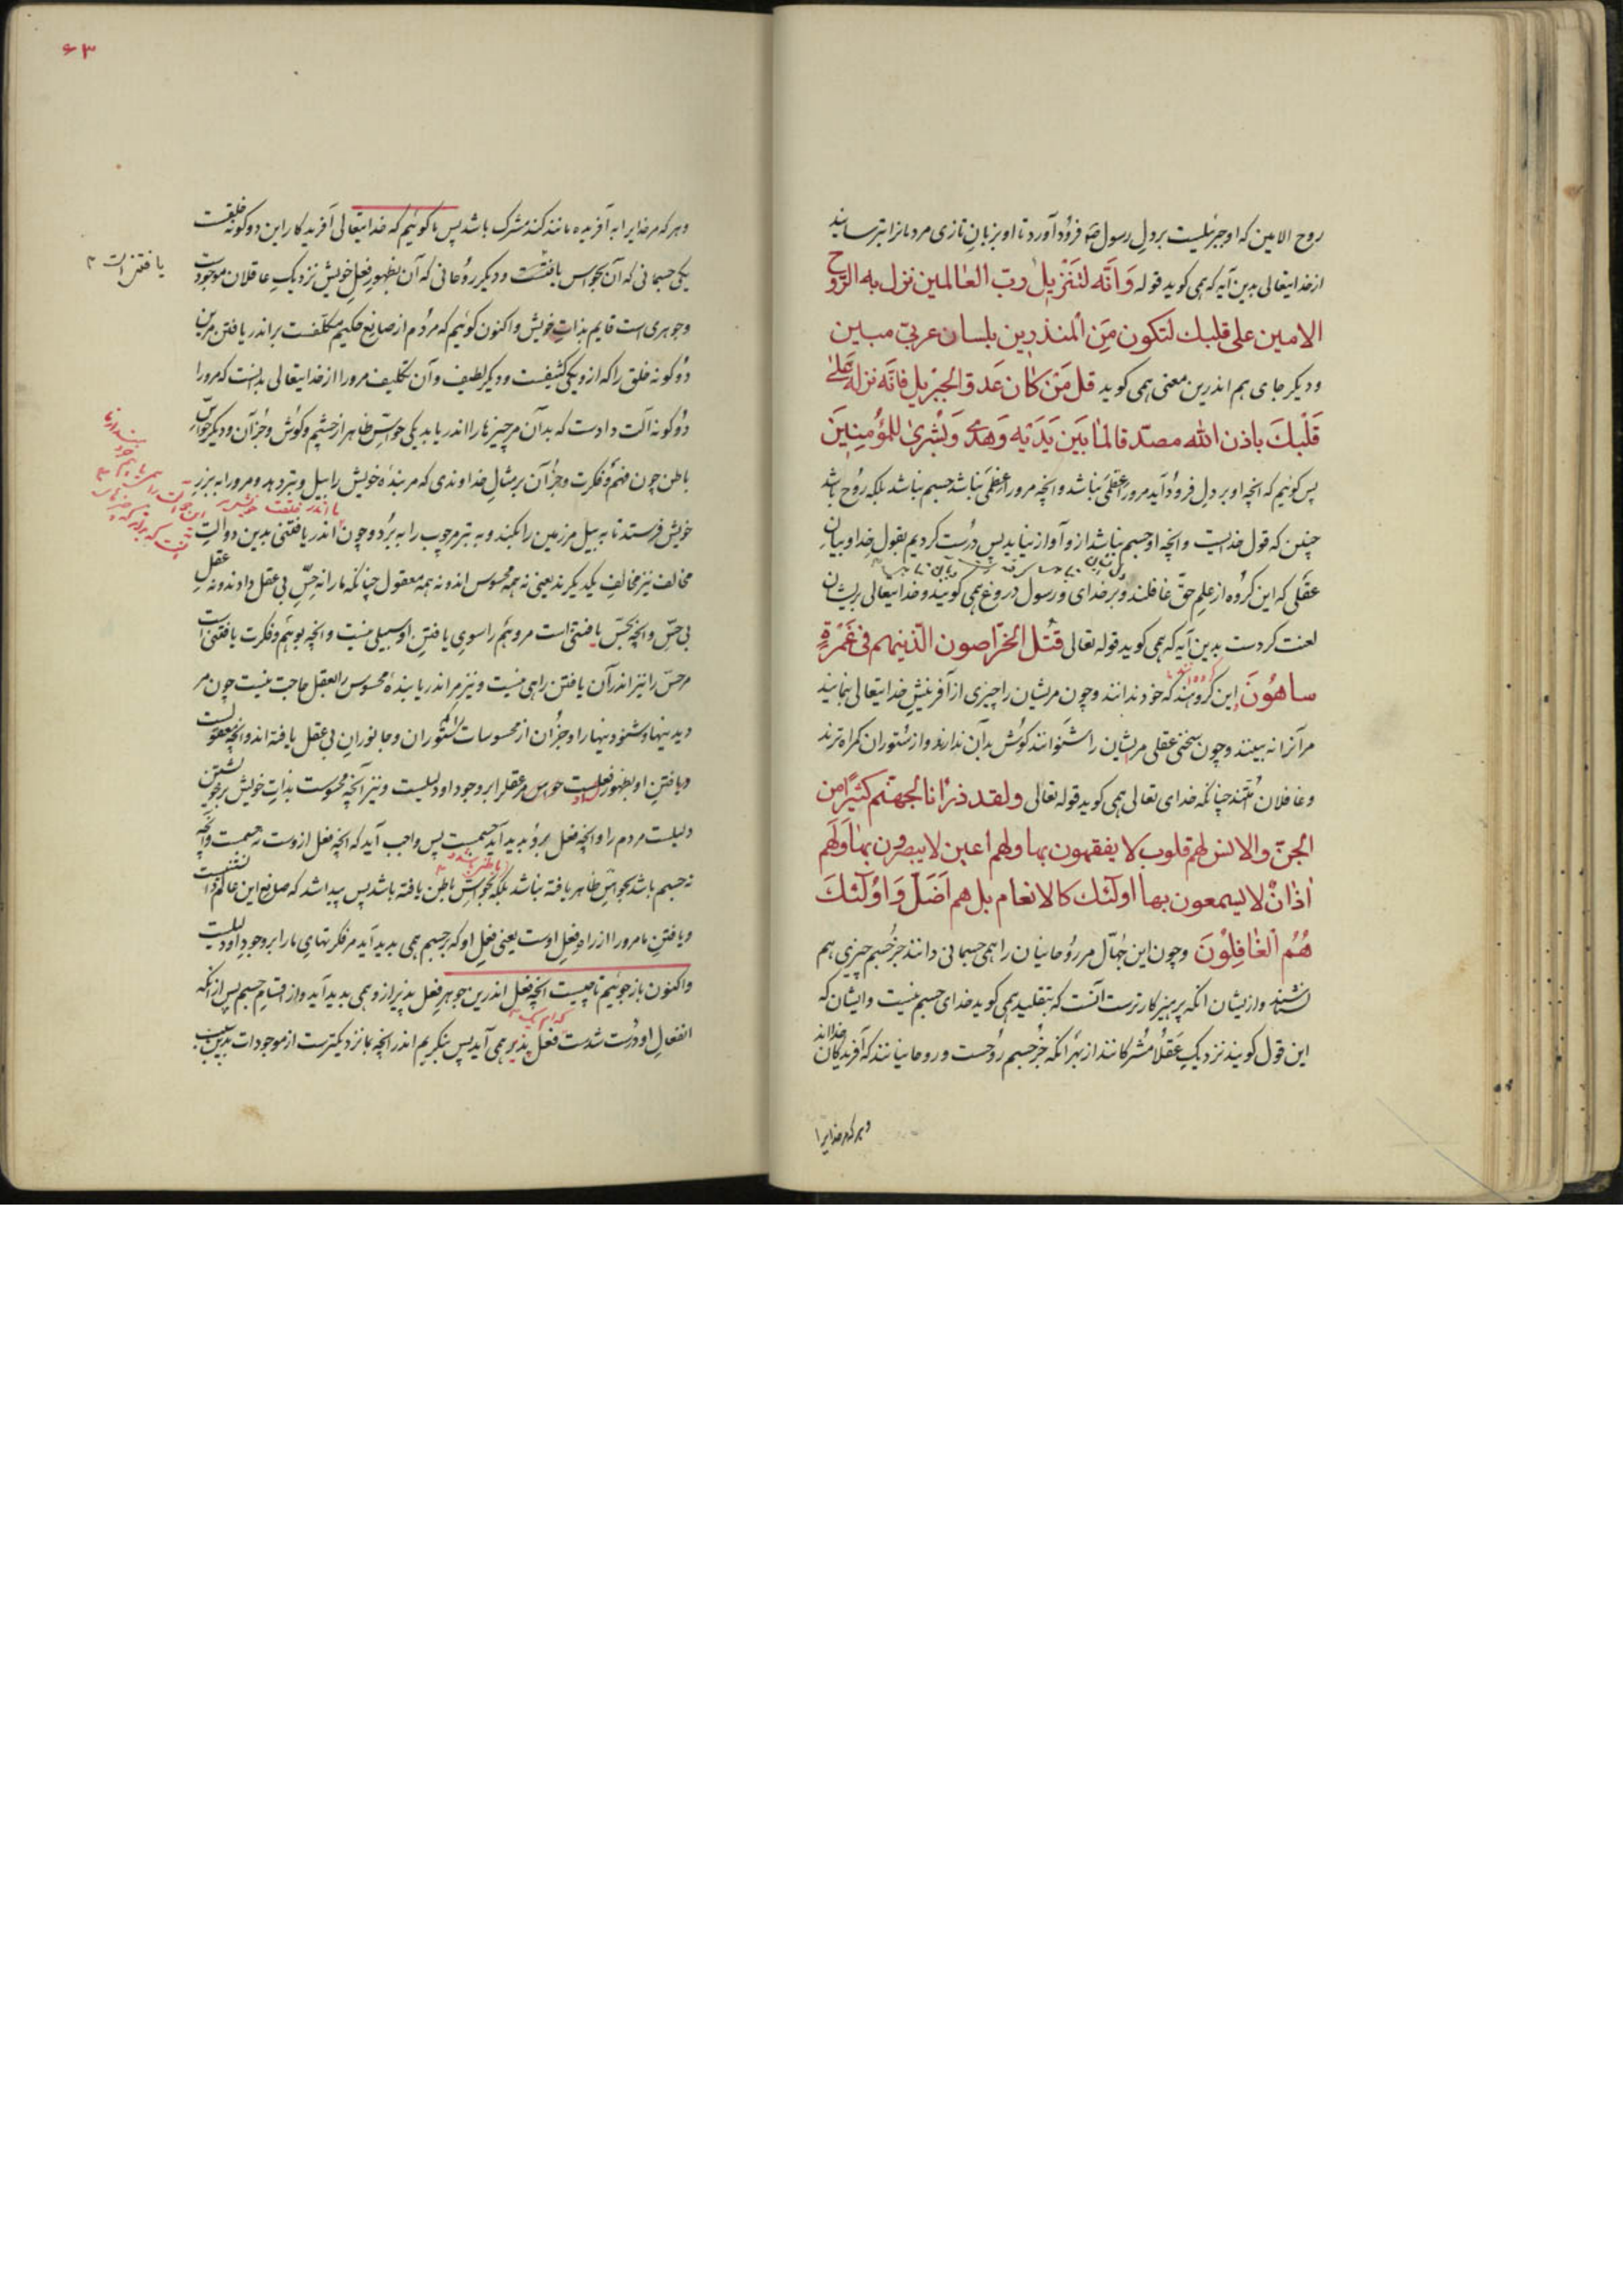 روح الامین که او جبرئیلست بر دل رسول فرود آورد تا او بزبان تازی مردمانرا بترساند
از خدایتعالی بدین آیه که همی کوید قوله وَاَنَّه لتَنَزیلُ ربّ العٰالمین نزل به الرّوح
الامین علی قلبك لتکون مِنَ المنذرین بلسان عربیّ مبین
ودیکر جای هم اندرین معنی همی کوید قل مَنْ کٰان عَدوّا لجبریل فانّه نزله عَلیٰ
قَلْبكَ باذن الله مصدّقا لمٰا بَین یَدَیْه وَهدیً وَبُشریٰ للمؤمِنینَ
پس کوئیم که انچه او بر دل فرود آید مرورا عِظَمی نباشد وانچه مرورا عِظَمی نباشد جسم نباشد بلکه روح باشد
چنین که قول خدایست وانچه او جسم نباشد ازو آواز نیاید پس درست کردیم بقول خدا وبیان
عقلی که این کروه از علم حقّ غافلند وبر خدای ورسول دروغ همی کویند وخدایتعالی بریشان
لعنت کردست بدین آیه که همی کوید قوله تعالی قُتل الخرّاصون الّذینهم فی غَمْرَةٍ
ساهُونَ این کروهند که خود ندانند وچون مریشان را چیزی از آفرینش خدایتعالی بنمایند
مر آنرا نه بینند وچون سخنی عقلی مریشان را شنوانند کوش بدان ندارند واز ستوران کمراه ترند
وغافلان امتند چنانکه خدای تعالی همی کوید قوله تعالی ولقد ذرأنا لجهنّم کثیرًا من
الجنّ والانس لهم قلوب لا یفقهون بها ولهم أعین لا یبصرون بهٰا وَلَهم
اٰذانٌ لا یسمعون بها اولٰئك کالانعام بل هم اَضَلّ وَاوُلٰئكَ
هُمُ الغٰافِلوُنَ وچون این جهّال مر روحانیان را همی جسمانی دانند جز جسم چیزی همی
نشناسند وازیشان انکه پرهیزکارترست آنست که بتقلید همی کوید خدای جسم نیست وایشان که
این قول کویند نزدیک عقلا مشرکانند از بهر انکه جز جسم روحست وروحانیانند که آفریدکان خدااند
وهرکه مر خدایرا
۶۳
وهر که مر خدایرا به آفریده مانند کند مشرک باشد پس ما کوئیم که خدایتعالی آفریدکار این دو کونه خلقست
یکی جسمانی که آن بحواس یافتنست ودیکر روحانی که آن بظهور فعل خویش نزدیک عاقلان موجودست
وجوهری است قایم بذات خویش واکنون کوئیم که مردم از صانع حکیم مکلّفست بر اندر یافتن مر این
دو کونه خلق را که ازو یکی کثیفست ودیکر لطیف وآن تکلیف مرورا از خدایتعالی بدانست که مرورا
دو کونه آلت دادست که بدان مر چیزها را اندر یابد یکی حواسّ ظاهر از چشم وکوش وجز آن ودیکر حواسّ
باطن چون فهم وفکرت وجز آن بر مثال خداوندی که مر بندهٔ خویش را بیل وتبر دهد ومرورا به برز
خویش فرستد تا به بیل مر زمین را بکند وبه تبر مر چوب را به برّد وچون اندر یافتنی بدین دو آلت
مخالف نیز مخالف یکدیکرند یعنی نه همه محسوس اند ونه همه معقول چنانکه ما را نه حسّ بی عقل دادند ونه عقل
بی حسّ وانچه بحسّ یافتنی است مر وهم را سوی یافتن او سبیلی نیست وانچه بوهم وفکرت یافتنی است
مر حسّ را نیز اندر آن یافتن راهی نیست ونیز مر اندر یابنده محسوس را بعقل حاجت نیست چون مر
دیدنیها وشنودنیها را وجز آن از محسوسات که ستوران وجانوران بی عقل یافته اند وانچه معقولست
ویافتن او بظهور فعلست حواس مر عقلرا بر وجود او دلیلست ونیز آنچه محسوست بذات خویش بر خویشتن
دلیلست مردم را وانچه فعل برو پدید آید جسمست پس واجب آید که انچه فعل ازوست نه جسمست وانچه
نه جسم باشد بحواسّ ظاهر یافته نباشد بلکه بحواسّ باطن یافته باشد پس پیدا شد که صانع این عالم نه
ویافتن ما مرورا از راه فعل اوست یعنی فعل او که بر جسم همی پدید آید مر فکرتهای ما را بر وجود او دلیلست
واکنون باز جوئیم تا چیست انچه فعل اندرین جوهر فعل پذیر ازو همی پدید آید واز اقسام جسم پس از انکه
انفعال او درست شدست فعل پذیر همی آید پس بنکریم اندر انچه بما نزدیکترست از موجودات بدین سبب